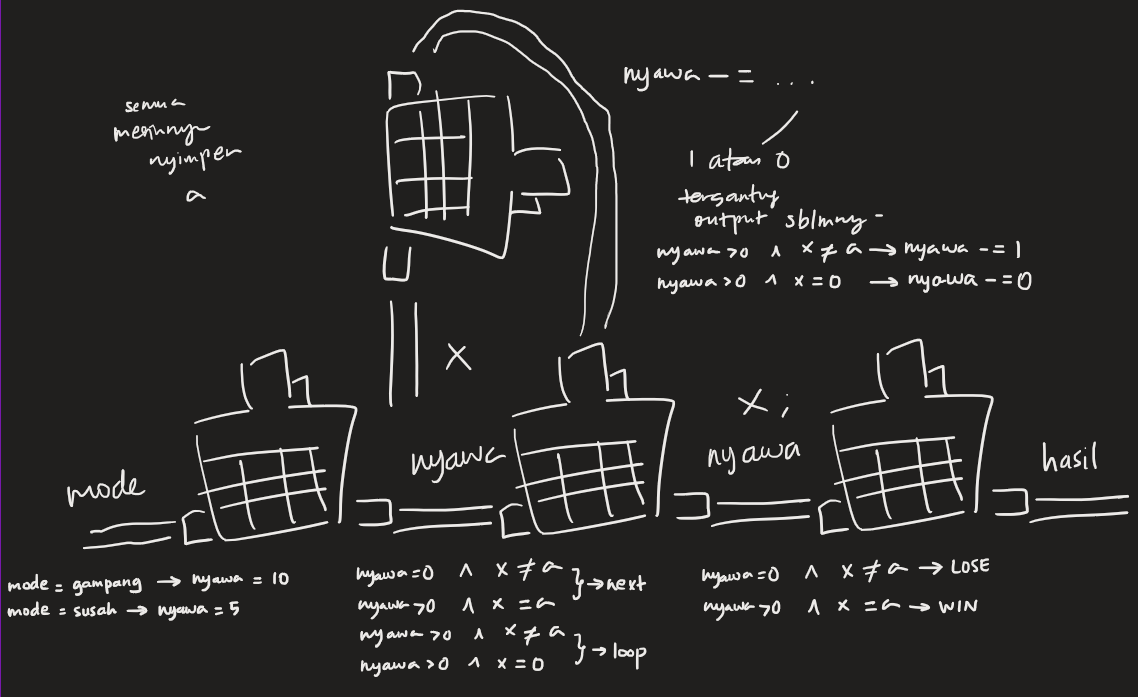 semua
mesinnya
nyimpen
a
nyawa -= ...
1 atau 0
tergantung
output sblmny -
nyawa >0 ∧ x ≠ a → nyawa -= 1
nyawa >0 ∧ x = 0 → nyawa -= 0
x
mode
nyawa
x ;
nyawa
hasil
mode = gampang → nyawa = 10
mode = susah → nyawa = 5
nyawa=0 ∧ x ≠ a
nyawa>0 ∧ x = a
} → next
nyawa >0 ∧ x ≠ a
nyawa >0 ∧ x = 0
} → loop
nyawa=0 ∧ x ≠ a → LOSE
nyawa>0 ∧ x = a → WIN